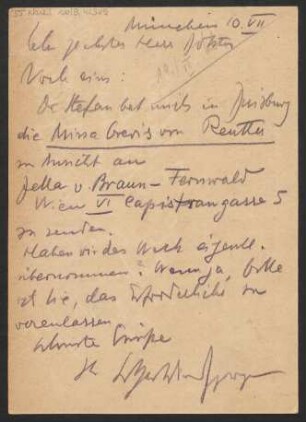 München 10. VII.
Sehr geehrter Herr Doktor
Noch eins:
Dr. Stefan bat mich in Duisburg
die Missa brevis von Reutter
zu Ansicht an
Jella v. Braun-Fernwald
Wien VI Capistrangasse 5
zu senden.
Haben wir das Werk eigentl.
übernommen? Wenn ja, bitte
ist Sie, das Erforderliche zu
veranlassen
Grüße
Ihr